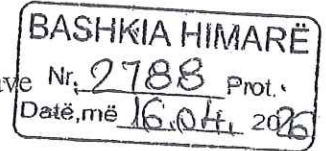 BASHKIA HIMARË
ave Nr. 2788 Prot.
Datë,më 16.04. 2026